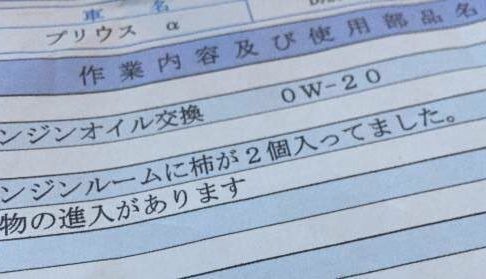 車 名
プリウス α
作業内容及び使用部品名
ンジンオイル交換 0W-20
ンジンルームに柿が2個入ってました。
物の進入があります